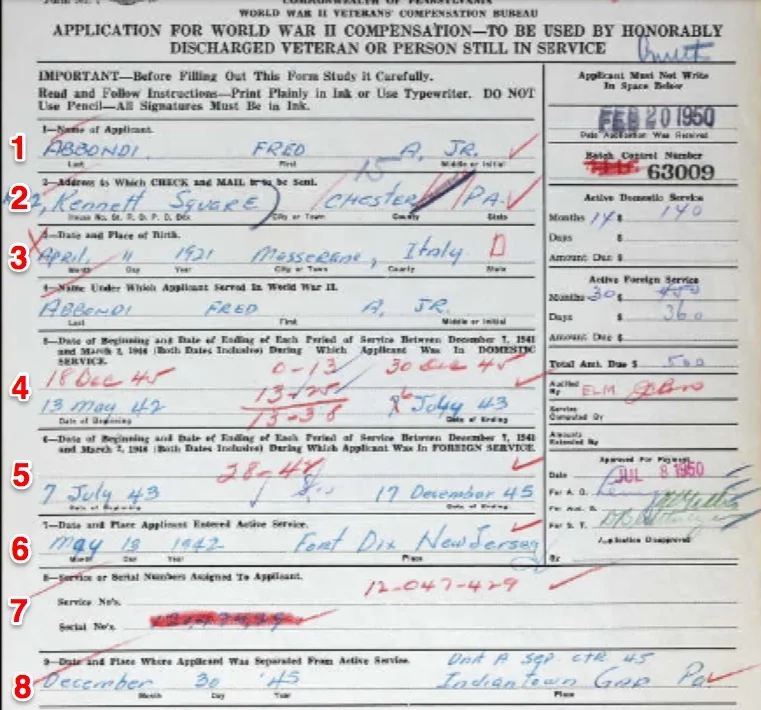 COMMONWEALTH OF PENNSYLVANIA
WORLD WAR II VETERANS' COMPENSATION BUREAU
APPLICATION FOR WORLD WAR II COMPENSATION—TO BE USED BY HONORABLY
DISCHARGED VETERAN OR PERSON STILL IN SERVICE
IMPORTANT—Before Filling Out This Form Study it Carefully.
Read and Follow Instructions—Print Plainly in Ink or Use Typewriter. DO NOT
Use Pencil—All Signatures Must Be in Ink.
Applicant Must Not Write
In Space Below
FEB 20 1950
Date Application Was Received
Batch Control Number
63009
1
1—Name of Applicant.
ABBONDI, FRED A, JR.
Last First Middle or Initial
15
2
2—Address to Which CHECK and MAIL is to be Sent.
Kennett Square CHESTER PA.
House No. St. R. D. P. O. Box City or Town County State
3
3—Date and Place of Birth.
April, 11 1921 Messerano, Italy D
Month Day Year City or Town County State
4—Name Under Which Applicant Served In World War II.
ABBONDI FRED A, JR.
Last First Middle or Initial
Active Domestic Service
Months 14 $ 140
Days $
Amount Due $
Active Foreign Service
Months 30 $ 450
Days $ 360
Amount Due $
Total Amt. Due $ 500
5—Date of Beginning and Date of Ending of Each Period of Service Between December 7, 1941
and March 2, 1946 (Both Dates Inclusive) During Which Applicant Was In DOMESTIC
SERVICE.
4
18 Dec 45 0-13 30 Dec 45
13-25
13 May 42 13-38 6 July 43
Date of Beginning Date of Ending
Audited
By ELM
Service
Computed By
Amounts
Extended By
6—Date of Beginning and Date of Ending of Each Period of Service Between December 7, 1941
and March 2, 1946 (Both Dates Inclusive) During Which Applicant Was in FOREIGN SERVICE.
5
7 July 43 17 December 45
Date of Beginning Date of Ending
Approved For Payment
Date JUL 8 1950
For A. G.
For Aud. G.
For S. T.
Application Disapproved
By
7—Date and Place Applicant Entered Active Service.
6
May 13 1942 Fort Dix New Jersey
Month Day Year Place
8—Service or Serial Numbers Assigned To Applicant.
12-047-429
7
Service No's.
Serial No's.
9—Date and Place Where Applicant Was Separated From Active Service.
Unit A Sep. Ctr 45
8
December 30 '45 Indiantown Gap Pa.
Month Day Year Place